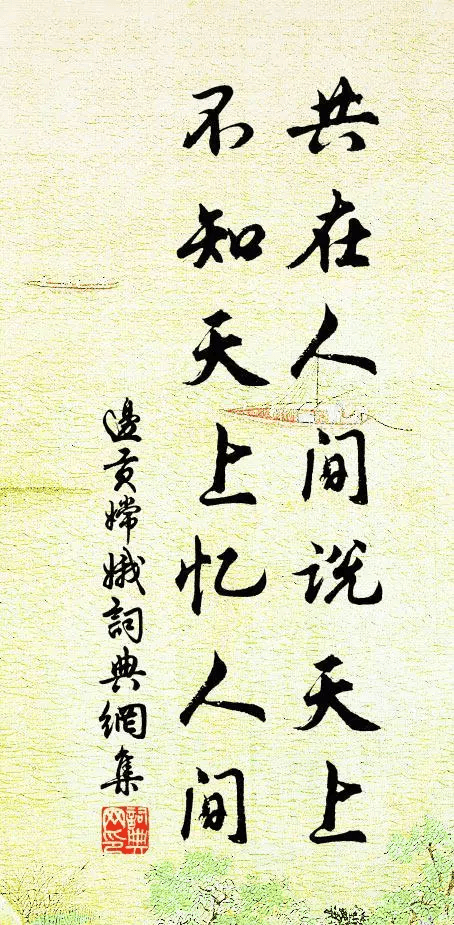 共在人间说天上
不知天上忆人间
邊貢嫦娥詞典網集
詞典
网印